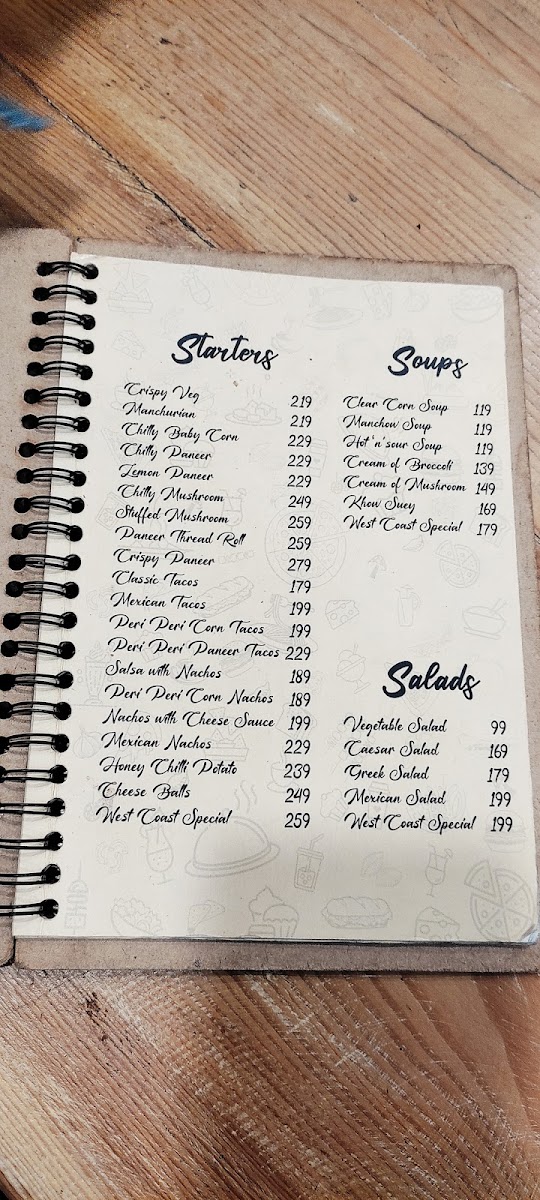 Starters
Crispy Veg 219
Manchurian 219
Chilly Baby Corn 229
Chilly Paneer 229
Lemon Paneer 229
Chilly Mushroom 249
Stuffed Mushroom 259
Paneer Thread Roll 259
Crispy Paneer 279
Classic Tacos 179
Mexican Tacos 199
Peri Peri Corn Tacos 199
Peri Peri Paneer Tacos 229
Salsa with Nachos 189
Peri Peri Corn Nachos 189
Nachos with Cheese Sauce 199
Mexican Nachos 229
Honey Chilli Potato 239
Cheese Balls 249
West Coast Special 259
Soups
Clear Corn Soup 119
Manchow Soup 119
Hot 'n' sour Soup 119
Cream of Broccoli 139
Cream of Mushroom 149
Khow Suey 169
West Coast Special 179
Salads
Vegetable Salad 99
Caesar Salad 169
Greek Salad 179
Mexican Salad 199
West Coast Special 199